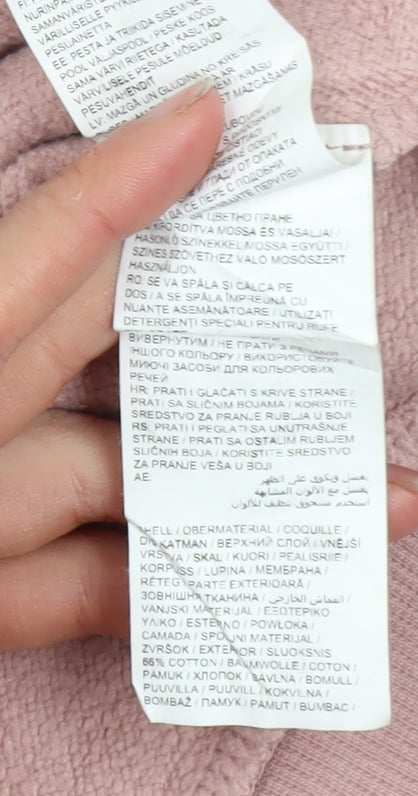 SAMANVÄRISTEN
VÄRILLISELLE PYYKILLE
PESUAINETTA
EE: PESTA JA TRIIKIDA SISEMINE
POOL VÄLJASPOOL / PESKE KOOS
SAMA VÄRVI RIIETEGA / KASUTADA
VÄRVILISELE PESULE MÕELDUD
PESUVAHENDIT
LV: MAZGĀT UN GLUDINĀT NO KREISĀS
KRĀSU
MAZGĀŠANAS
ГЛАДИ ОТ ОПАКАТА
ДА СЕ ПЕРЕ С ПОДОБНИ
ПЕРИЛЕН
ЗА ЦВЕТНО ПРАНЕ
KIFORDÍTVA MOSSA ÉS VASALJA! /
HASONLÓ SZÍNEKKEL MOSSA EGYÜTT! /
SZÍNES SZÖVETHEZ VALÓ MOSÓSZERT
HASZNÁLJON
RO: SE VA SPĂLA ȘI CĂLCA PE
DOS / A SE SPĂLA ÎMPREUNĂ CU
NUANȚE ASEMĂNĂTOARE / UTILIZAȚI
DETERGENȚI SPECIALI PENTRU RUFE
ВИВЕРНУТИМ / НЕ ПРАТИ З РЕЧАМИ
ІНШОГО КОЛЬОРУ / ВИКОРИСТОВУЙТЕ
МИЮЧІ ЗАСОБИ ДЛЯ КОЛЬОРОВИХ
РЕЧЕЙ
HR: PRATI I GLAČATI S KRIVE STRANE /
PRATI SA SLIČNIM BOJAMA / KORISTITE
SREDSTVO ZA PRANJE RUBLJA U BOJI
RS: PRATI I PEGLATI SA UNUTRAŠNJE
STRANE / PRATI SA OSTALIM RUBLJEM
SLIČNIH BOJA / KORISTITE SREDSTVO
ZA PRANJE VEŠA U BOJI
AE: يغسل ويكوى على الظهر
يغسل مع الألوان المشابهة
استخدم مسحوق تنظيف للألوان
SHELL / OBERMATERIAL / COQUILLE /
DIŞ KATMAN / ВЕРХНИЙ СЛОЙ / VNĚJŠÍ
VRSTVA / SKAL / KUORI / PEALISRIIE /
KORPUSS / LUPINA / МЕМБРАНА /
RÉTEG / PARTE EXTERIOARĂ /
ЗОВНІШНЯ ТКАНИНА / القماش الخارجي /
VANJSKI MATERIJAL / ΕΞΩΤΕΡΙΚΟ
ΥΛΙΚΟ / ESTERNO / POWŁOKA /
CAMADA / SPOLJNI MATERIJAL /
ZVRŠOK / EXTERIOR / SLUOKSNIS
66% COTTON / BAUMWOLLE / COTON /
PAMUK / ХЛОПОК / BAVLNA / BOMULL /
PUUVILLA / PUUVILL / KOKVILNA /
BOMBAŽ / ПАМУК / PAMUT / BUMBAC /